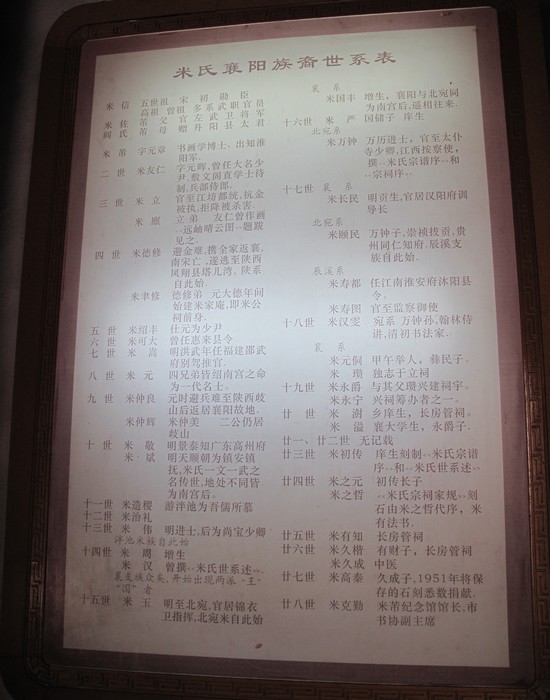 米氏襄阳族裔世系表
米 信 五世祖 宋 初 勋 臣
高祖 曾祖 多系武职官员
米 佐 芾 父 官 左 武 卫 将 军
阎 氏 芾 母 赠 丹 阳 县 太 君
米 芾 字元章 书画学博士、出知淮
阳军。
二 世 米友仁 字元晖,曾任大名少
尹,敷文阁直学士待
制,兵部侍郎。
三 世 米 立 官至江坊都统,抗金
被执,拒降被杀害。
米 愿 立 弟 友仁曾作画
《远岫晴云图》题跋
见之。
四 世 米德修 避金难,携全家返襄,
南宋亡,遂逃至陕西
凤翔县塔儿湾。陕系
自此始。
米聿修 德修弟 元大德年间
始建米家庵,即米公
祠前身。
五 世 米绍丰 仕元为少尹
六 世 米可大 曾任惠来县令
七 世 米 嵩 明洪武年任福建邵武
府别驾推官。
八 世 米 元 四兄弟皆绍南宫之命
为一代名士。
九 世 米仲良 元时避兵难至陕西歧
山后返居襄阳故地。
米仲辉 米仲美 二公仍居
歧山
十 世 米 敬 明景泰知广东高州府
米 斌 明天顺朝为镇安镇
抚,米氏一文一武之
名传世,地处不同皆
为南宫后。
十一世 米造樱 游泮池为吾儒所慕
十二世 米治礼
十三世 米 伟 明进士,后为尚宝少卿
泮池米族自此始
十四世 米 周 增生
米 汉 曾撰《米氏世系述》
襄支族众矣,开始出现两派“王”
“国”者
十五世 米 玉 明至北宛,官居锦衣
卫指挥,北宛米自此始
襄 系
米国丰 增生,襄阳与北宛同
为南宫后,遥相往来.
十六世 米 严 国储子 庠生
北宛系
米万钟 万历进士,官至太仆
寺少卿,江西按察使,
撰《米氏宗谱序》和
《宗祠序》。
十七世 襄 系
米长民 明贡生,官居汉阳府训
导长
北宛系
米颐民 万钟子,崇祯拔贡,贵
州同仁知府.辰溪支
族自此始.
辰溪系
米寿都 任江南淮安府沭阳县
令.
米寿图 官至监察御使
十八世 米汉雯 宛系 万钟孙,翰林侍
讲,清初书法家.
襄 系
米元侗 甲午举人,彝民子。
米 瓒 独志于立祠
十九世 米永爵 与其父瓒兴建祠宇。
米永宁 兴祠筹办者之一。
廿 世 米 澍 乡庠生,长房管祠。
米 溢 襄大学生,永爵子.
廿一、廿二世 无记载
廿三世 米初传 庠生刻制《米氏宗谱
序》和《米氏世系述》
廿四世 米之元 初传长子
米之哲 《米氏宗祠家规》刻
石由米之哲代序,米
有法书.
廿五世 米有知 长房管祠
廿六世 米久楷 有财子,长房管祠
米久成 中医
廿七世 米高泰 久成子,1951年将保
存的石刻悉数捐献.
廿八世 米克勤 米芾纪念馆馆长,市
书协副主席